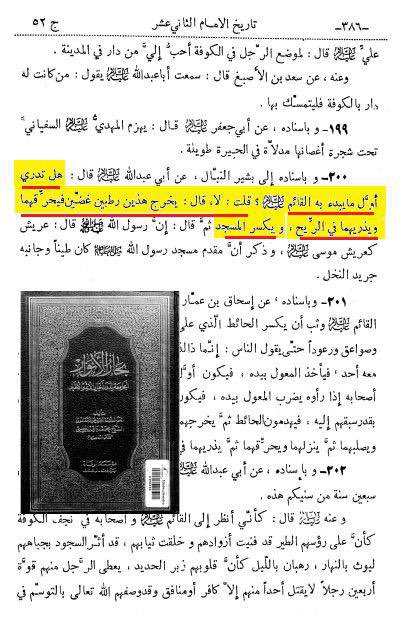 -٣٨٦- تاريخ الامام الثاني عشر ج ٥٢
عليٌّ عليه السلام قال : لموضع الرِّجل في الكوفة أحبُّ إليَّ من دار في المدينة .
وعنه ، عن سعد بن الأصبغ قال : سمعت أباعبدالله عليه السلام يقول : من كانت له
دار بالكوفة فليتمسّك بها .
١٩٩ـ و باسناده ، عن أبي جعفر عليه السلام قال : يهزم المهديُّ عليه السلام السفياني َّ
تحت شجرة أغصانها مدلاّة في الحيرة طويلة .
٢٠٠ـ و باسناده إلى بشير النبّال ، عن أبي عبدالله عليه السلام قال : هل تدري
أوَّل مايبدء به القائم عليه السلام ؟ قلت : لا، قال : يخرج هذين رطبين غضّين فيحرِّقهما
ويذرِّيهما في الرِّيح ، و يكسر المسجد ثمَّ قال : إنَّ رسول الله صلى الله عليه وآله قال : عريش
كعريش موسى عليه السلام ، و ذكر أنَّ مقدم مسجد رسول الله صلى الله عليه وآله كان طيناً وجانبه
جريد النخل .
٢٠١ـ وباسناده ، عن إسحاق بن عمّار
القائم عليه السلام وثب أن يكسر الحائط الّذي على
وصواعق ورعوداً حتّى يقول الناس : إنّما ذا لذا
معه أحد ، فيأخذ المعول بيده ، فيكون أوَّل
أصحابه إذا رأوه يضرب المعول بيده ، فيكون
بقدرسبقهم إليه ، فيهدمون الحائط ثمَّ يخرجهم
ويصلبهما ثمَّ ينزلهما ويحرِّقهما ثمَّ يذرِّيهما في
٢٠٢ـ و باسناده ، عن أبي عبدالله عليه السلام
سبعين سنة من سنيكم هذه .
و عنه عليه السلام قال : كأنّي أنظر إلى القائم عليه السلام و أصحابه في نجف الكوفة
كأنَّ على رؤسهم الطير قد فنيت أزوادهم و خلقت ثيابهم ، قد أثّر السجود بجباههم
ليوث بالنهار ، رهبان باللّيل كأنَّ قلوبهم زبر الحديد ، يعطى الرَّجل منهم قوَّة
أربعين رجلاً لايقتل أحداً منهم إلاّ كافر أومنافق وقدوصفهم الله تعالى بالتوسّم في
بحار الأنوار